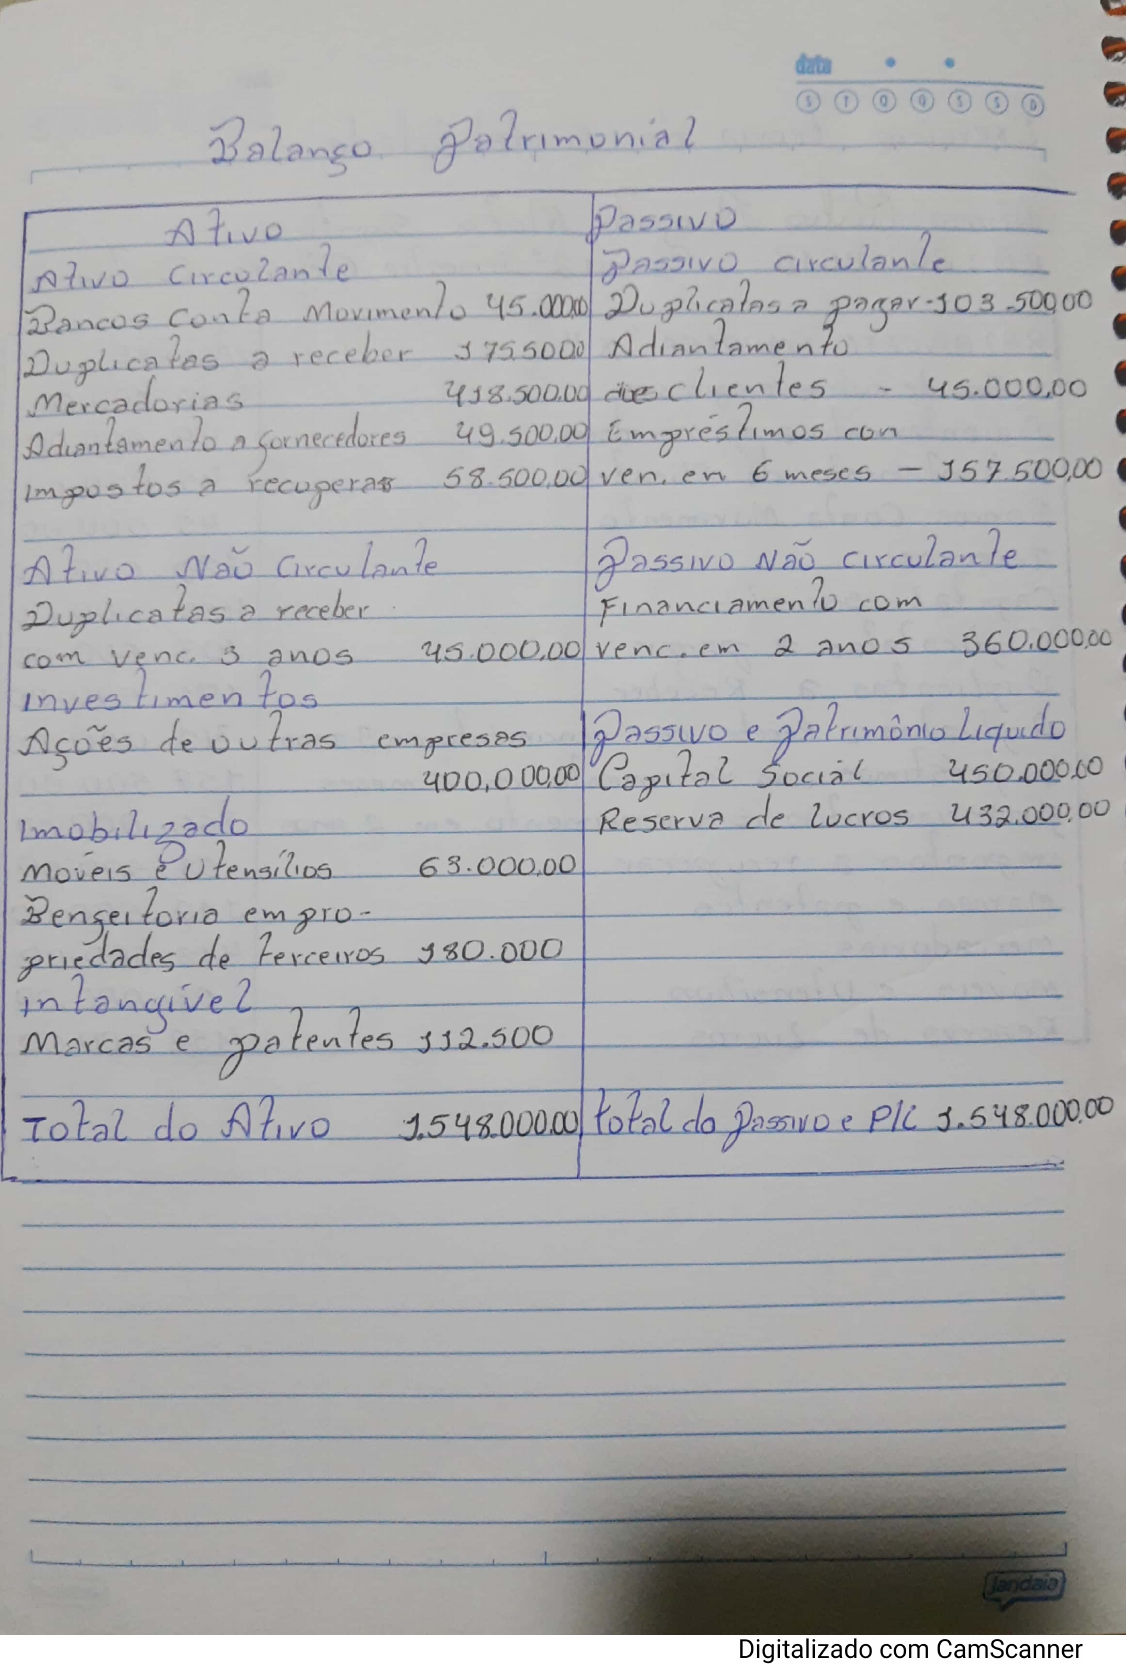 data
S T Q Q S S D
Balanço Patrimonial
Ativo
Ativo Circulante
Bancos conta Movimento 45.000,00
Duplicatas a receber 175.500,00
Mercadorias 418.500,00
Adiantamento a fornecedores 49.500,00
Impostos a recuperar 58.500,00
Ativo Não Circulante
Duplicatas a receber
com venc. 3 anos 45.000,00
Investimentos
Ações de outras empresas
400,000,00
Imobilizado
Moveis e Utensílios 63.000,00
Benfeitoria em pro-
priedades de terceiros 180.000
intangível
Marcas e patentes 112.500
Total do Ativo 1.548.000.00
Passivo
Passivo circulante
Duplicatas a pagar - 103.500,00
Adiantamento
de clientes - 45.000,00
Empréstimos con
ven. en 6 meses - 157.500,00
Passivo Não circulante
Financiamento com
venc. em 2 anos 360.000,00
Passivo e Patrimônio Liquido
Capital Social 450.000.00
Reserva de lucros 432.000,00
total do Passivo e P/L 1.548.000,00
jandaia
Digitalizado com CamScanner